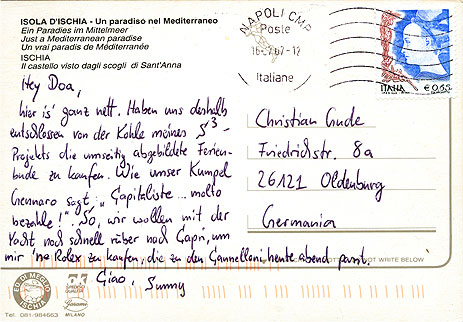 ISOLA D'ISCHIA - Un paradiso nel Mediterraneo
Ein Paradies im Mittelmeer
Just a Mediterranean paradise
Un vrai paradis de Méditerranée
ISCHIA
Il castello visto dagli scogli di Sant'Anna
Hey Doa,
hier is' ganz nett. Haben uns deshalb
entschlossen von der Kohle meines S³-
Projekts die umseitig abgebildete Ferien-
bude zu kaufen. Wie unser Kumpel
Gennaro sagt: "Capitaliste... molto
bezahle!". So, wir wollen mit der
Yacht noch schnell rüber nach Capri, um
mir 'ne Rolex zu kaufen, die zu den Cannelloni heute abend passt.
Ciao, Sunny
NAPOLI CMP
Poste
12
Italiane
ITALIA
€ 0,65
Christian Gude
Friedrichstr. 8a
26121 Oldenburg
Germania
NOT WRITE BELOW
MILANO
Tel. 081-984663